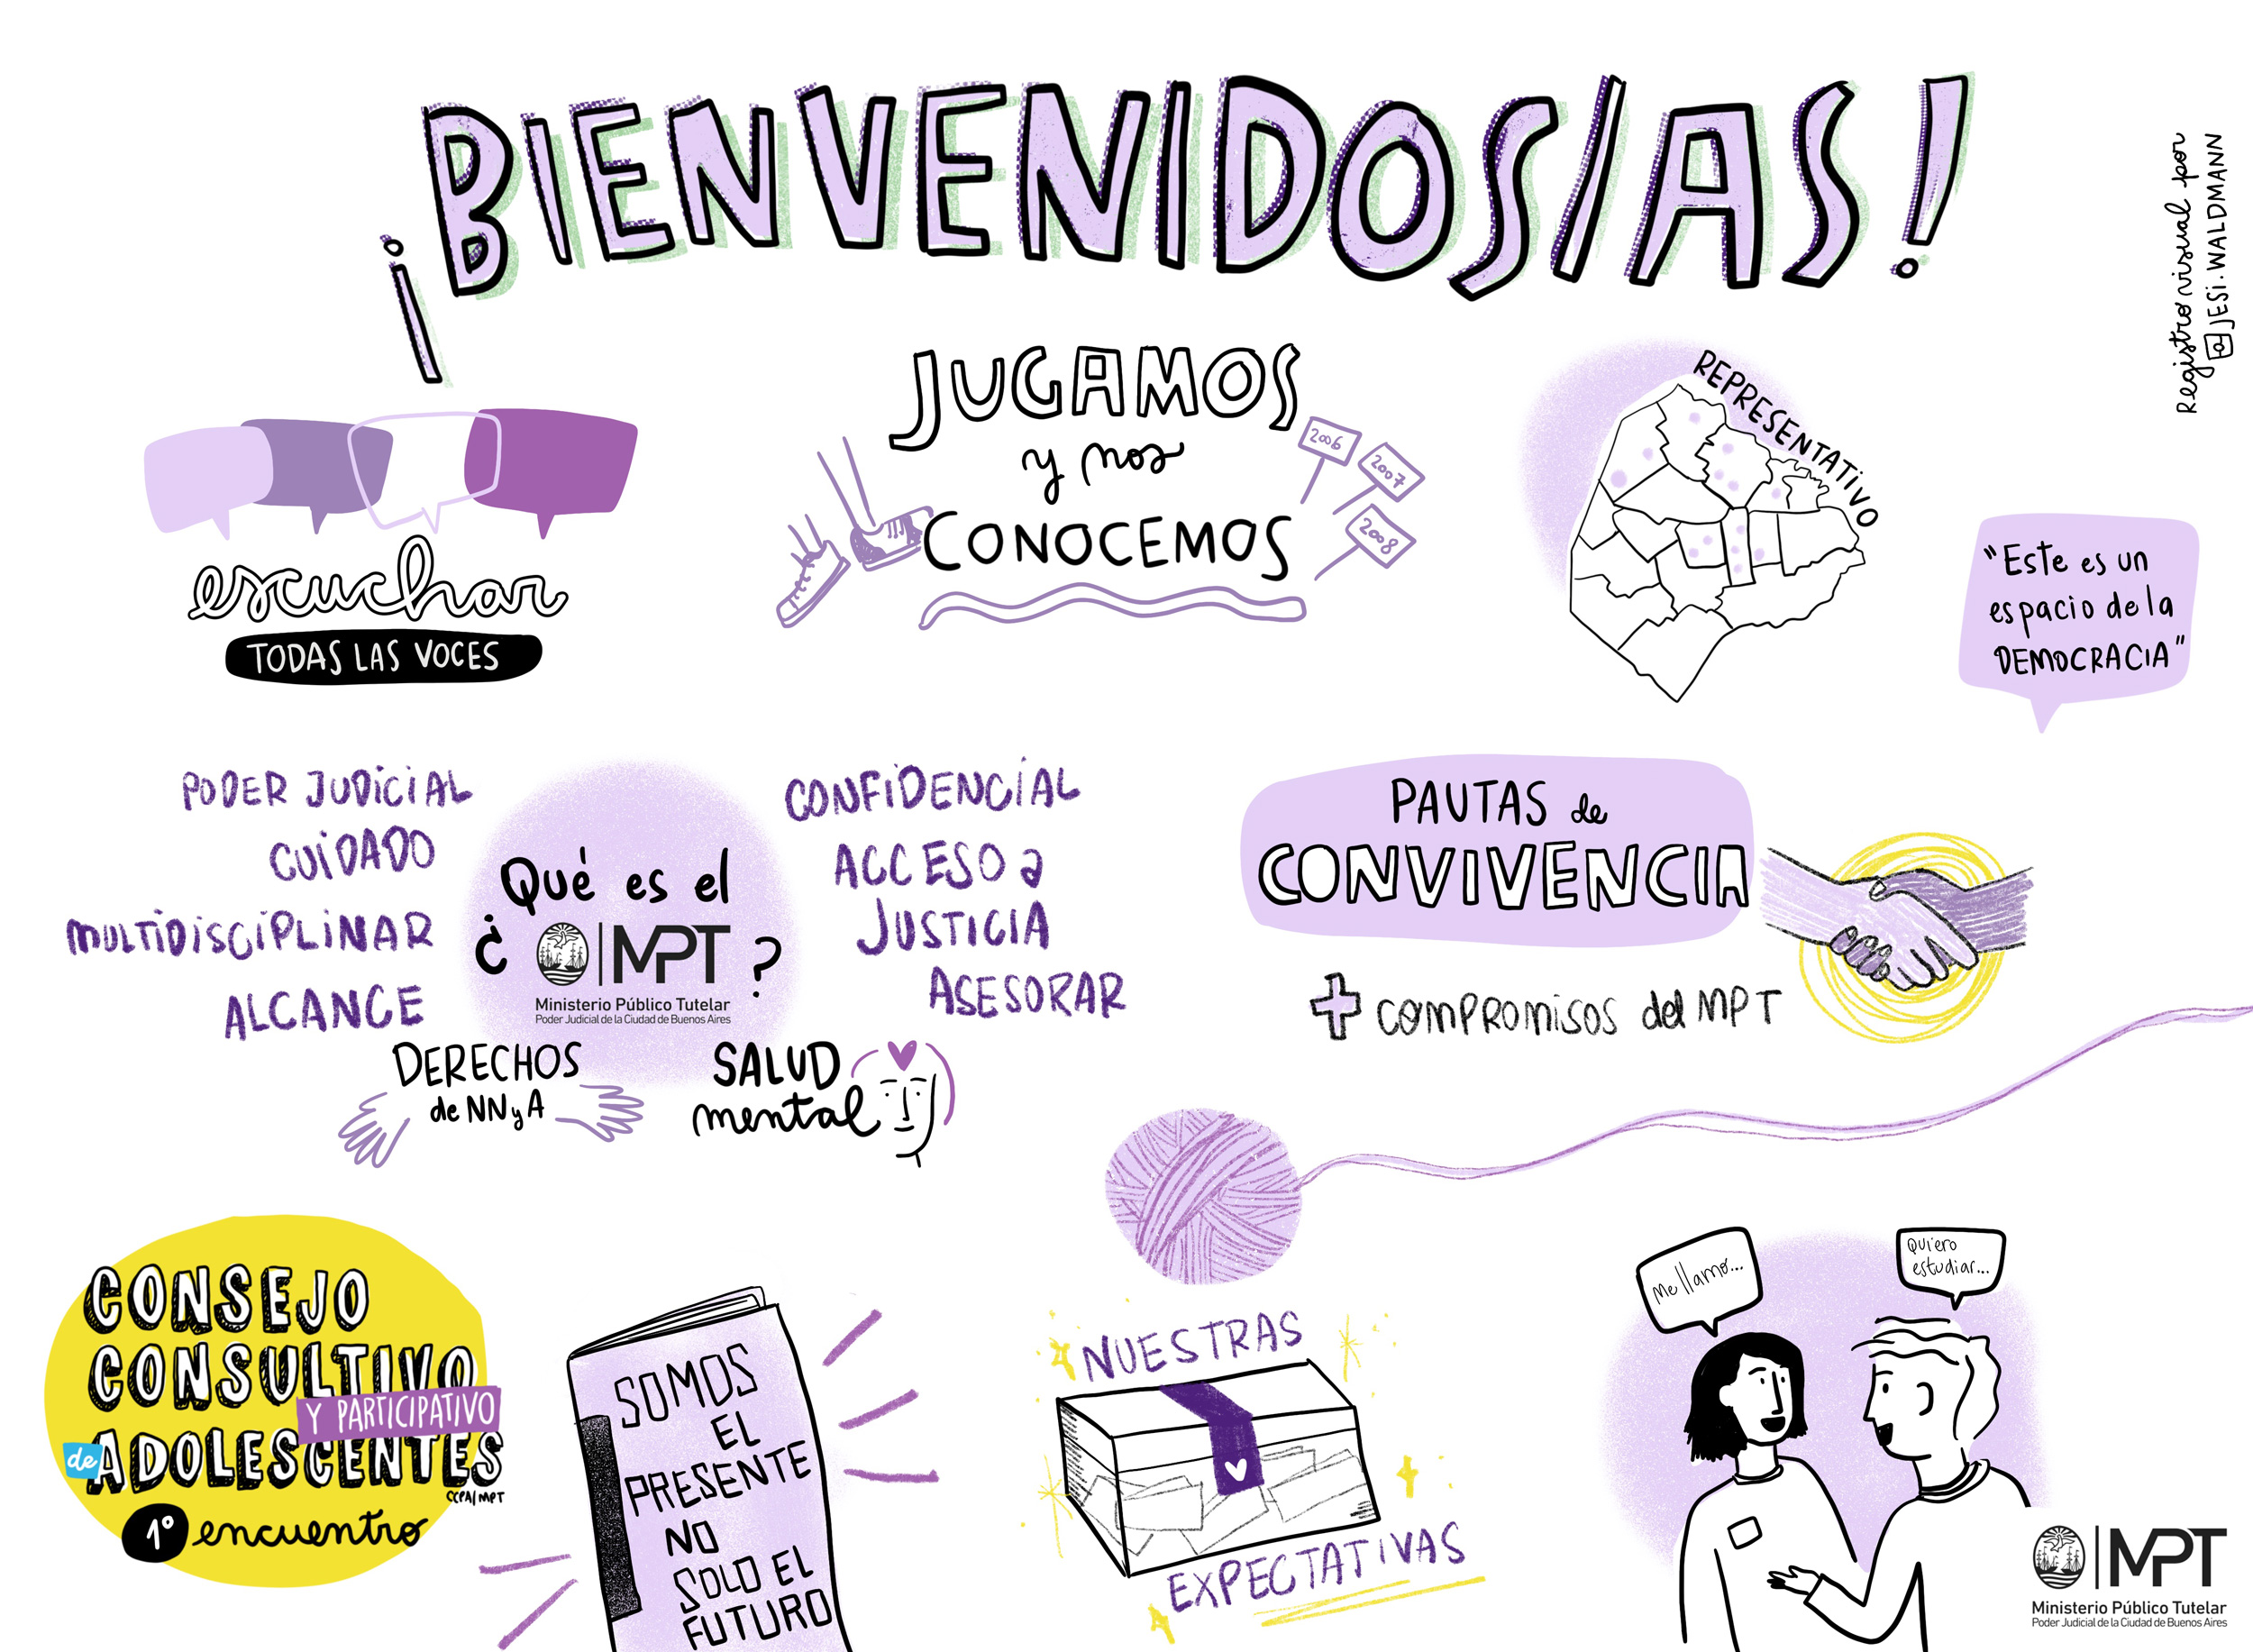 ¡BIENVENIDOS/AS!
Registro visual por
@JESI.WALDMANN
escuchar
TODAS LAS VOCES
JUGAMOS
y nos
CONOCEMOS
2006
2007
2008
REPRESENTATIVO
"Este es un
espacio de la
DEMOCRACIA"
PODER JUDICIAL
CUIDADO
MULTIDISCIPLINAR
ALCANCE
¿Qué es el
MPT?
Ministerio Público Tutelar
Poder Judicial de la Ciudad de Buenos Aires
CONFIDENCIAL
ACCESO a
JUSTICIA
ASESORAR
DERECHOS
de NN y A
SALUD
mental
PAUTAS de
CONVIVENCIA
+ COMPROMISOS del MPT
CONSEJO
CONSULTIVO
Y PARTICIPATIVO
de ADOLESCENTES
CCPA/MPT
1° encuentro
SOMOS
EL
PRESENTE
NO
SOLO EL
FUTURO
NUESTRAS
EXPECTATIVAS
Me llamo...
Quiero
estudiar...
MPT
Ministerio Público Tutelar
Poder Judicial de la Ciudad de Buenos Aires